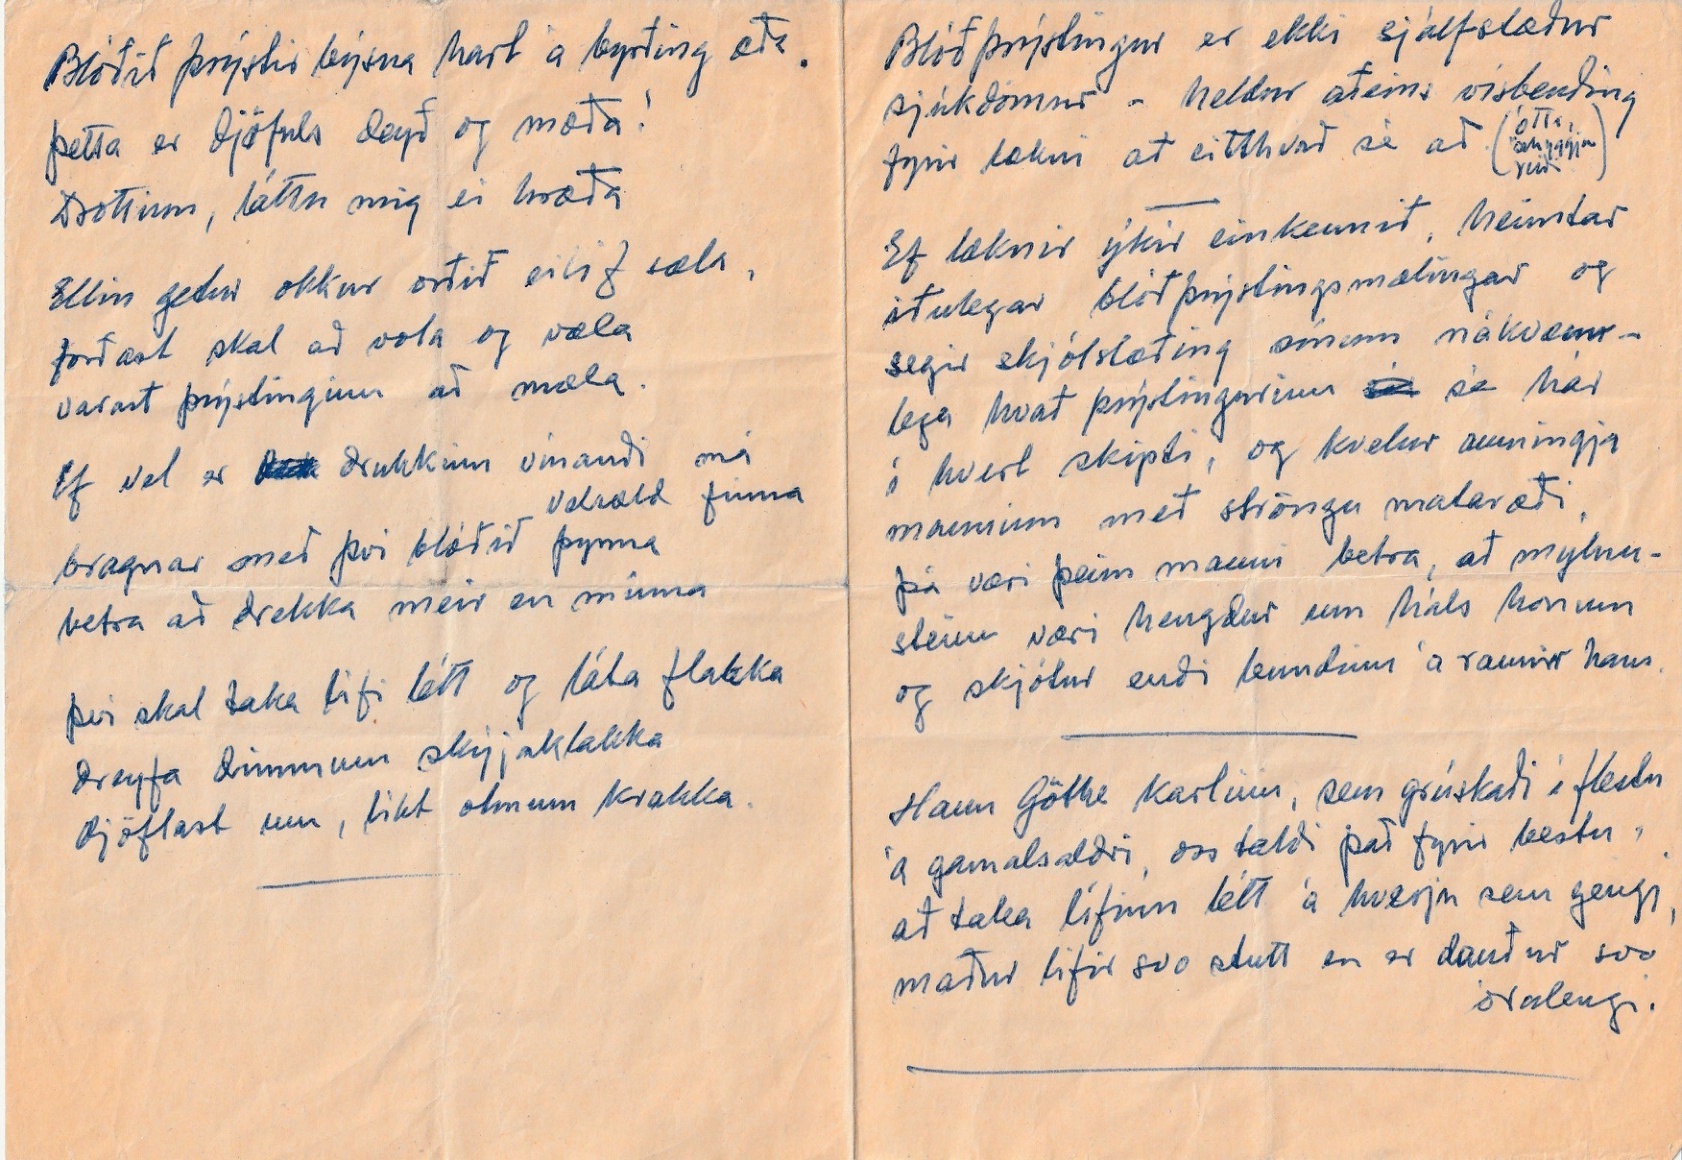 Blóðið þrýstir býsna hart á byrðing æða.
þetta er djöfuls deyð og mæða!
Drottinn, láttu mig ei hræða
Ellin getur okkur orðið eilíf sæla,
forðast skal að vola og væla
varast þrýstinginn að mæla.
Ef vel er drukkinn vínandi má
velsæld finna
bragnar með því blóðið þynna
betra að drekka meir en minna
því skal taka lífi létt og láta flakka
dreyfa dimmum skýjaklakka
djöflast um, líkt olmum krakka.
Blóðþrýstingur er ekki sjálfstæður
sjúkdómur - heldur aðeins vísbending
fyrir lækni að eitthvað sé að (ótti,
áhyggjur
reiði)
Ef læknir ýkir einkennið, heimtar
iðulegar blóðþrýstingsmælingar og
segir skjólstæðing sínum nákvæm-
lega hvað þrýstingurinn sé hár
í hvert skipti, og kvelur aumingja
manninn með ströngu mataræði,
þá væri þeim manni betra, að mylnu-
steinn væri hengdur um háls honum
og skjótur endi bundinn á raunir hans.
Hann Göthe karlinn, sem grúskaði í flestu
á gamalsaldri, oss taldi það fyrir bestu,
að taka lífinu létt á hverju sem gengi,
maður lifir svo stutt en er dauður svo
óralengi.